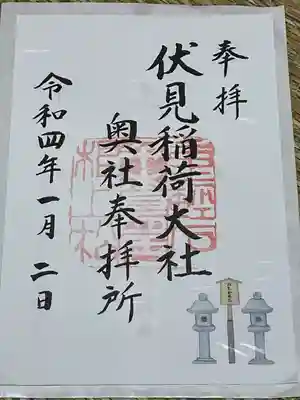 奉拝
伏見稲荷大社
奥社奉拝所
令和四年一月二日